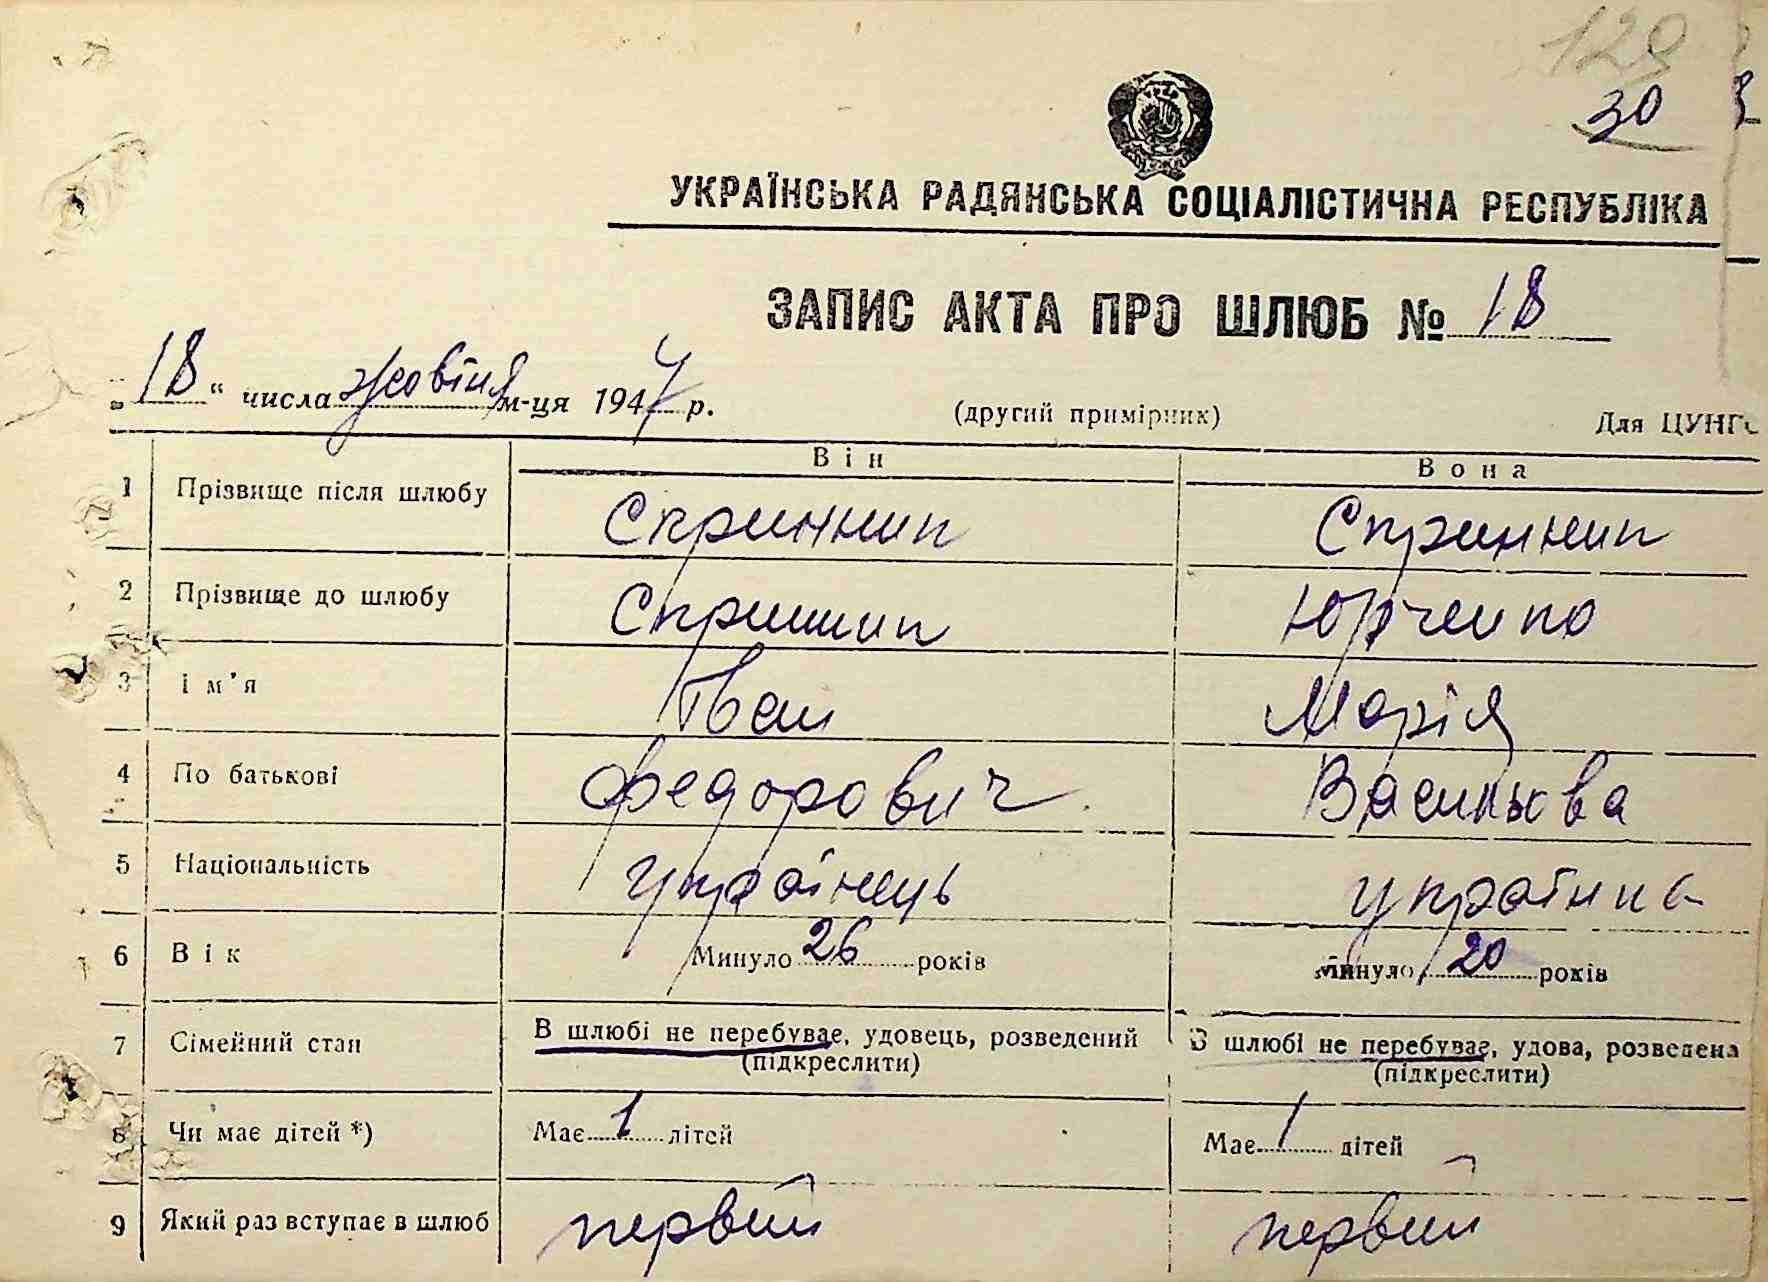 129
30
УКРАЇНСЬКА РАДЯНСЬКА СОЦІАЛІСТИЧНА РЕСПУБЛІКА
ЗАПИС АКТА ПРО ШЛЮБ № 18
„18“ числа жовтня м-ця 1947 р. (другий примірник) Для ЦУНГО
Він Вона
1 Прізвище після шлюбу Скринник Скринник
2 Прізвище до шлюбу Скринник Юрченко
3 Ім'я Іван Марія
4 По батькові Федорович Васильова
5 Національність українець українка
6 Вік Минуло 26 років Минуло 20 років
7 Сімейний стан В шлюбі не перебуває, удовець, розведений В шлюбі не перебуває, удова, розведена
(підкреслити) (підкреслити)
8 Чи має дітей *) Має 1 дітей Має 1 дітей
9 Який раз вступає в шлюб первий первий